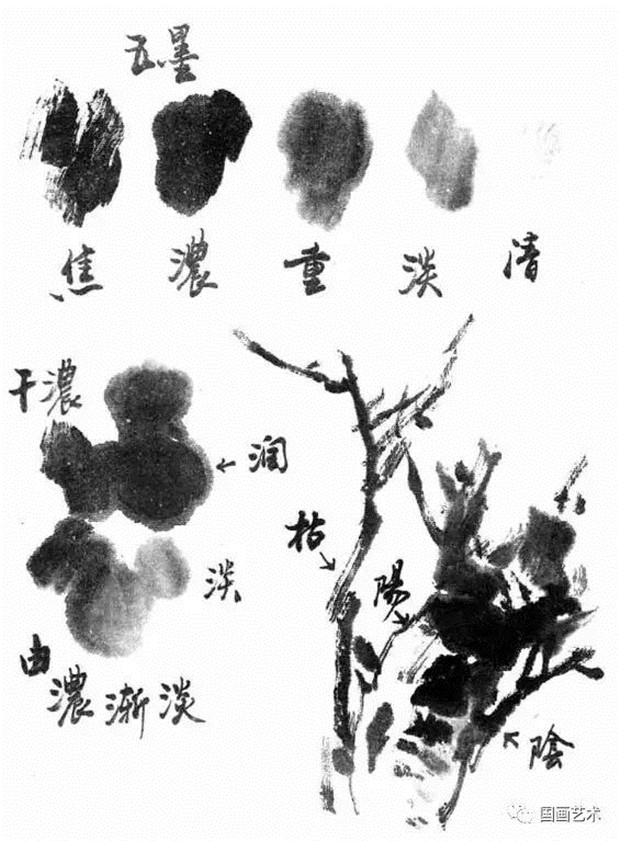 五墨
焦 濃 重 淡 清
干濃
润
淡
由濃渐淡
枯
陽
陰
国画艺术